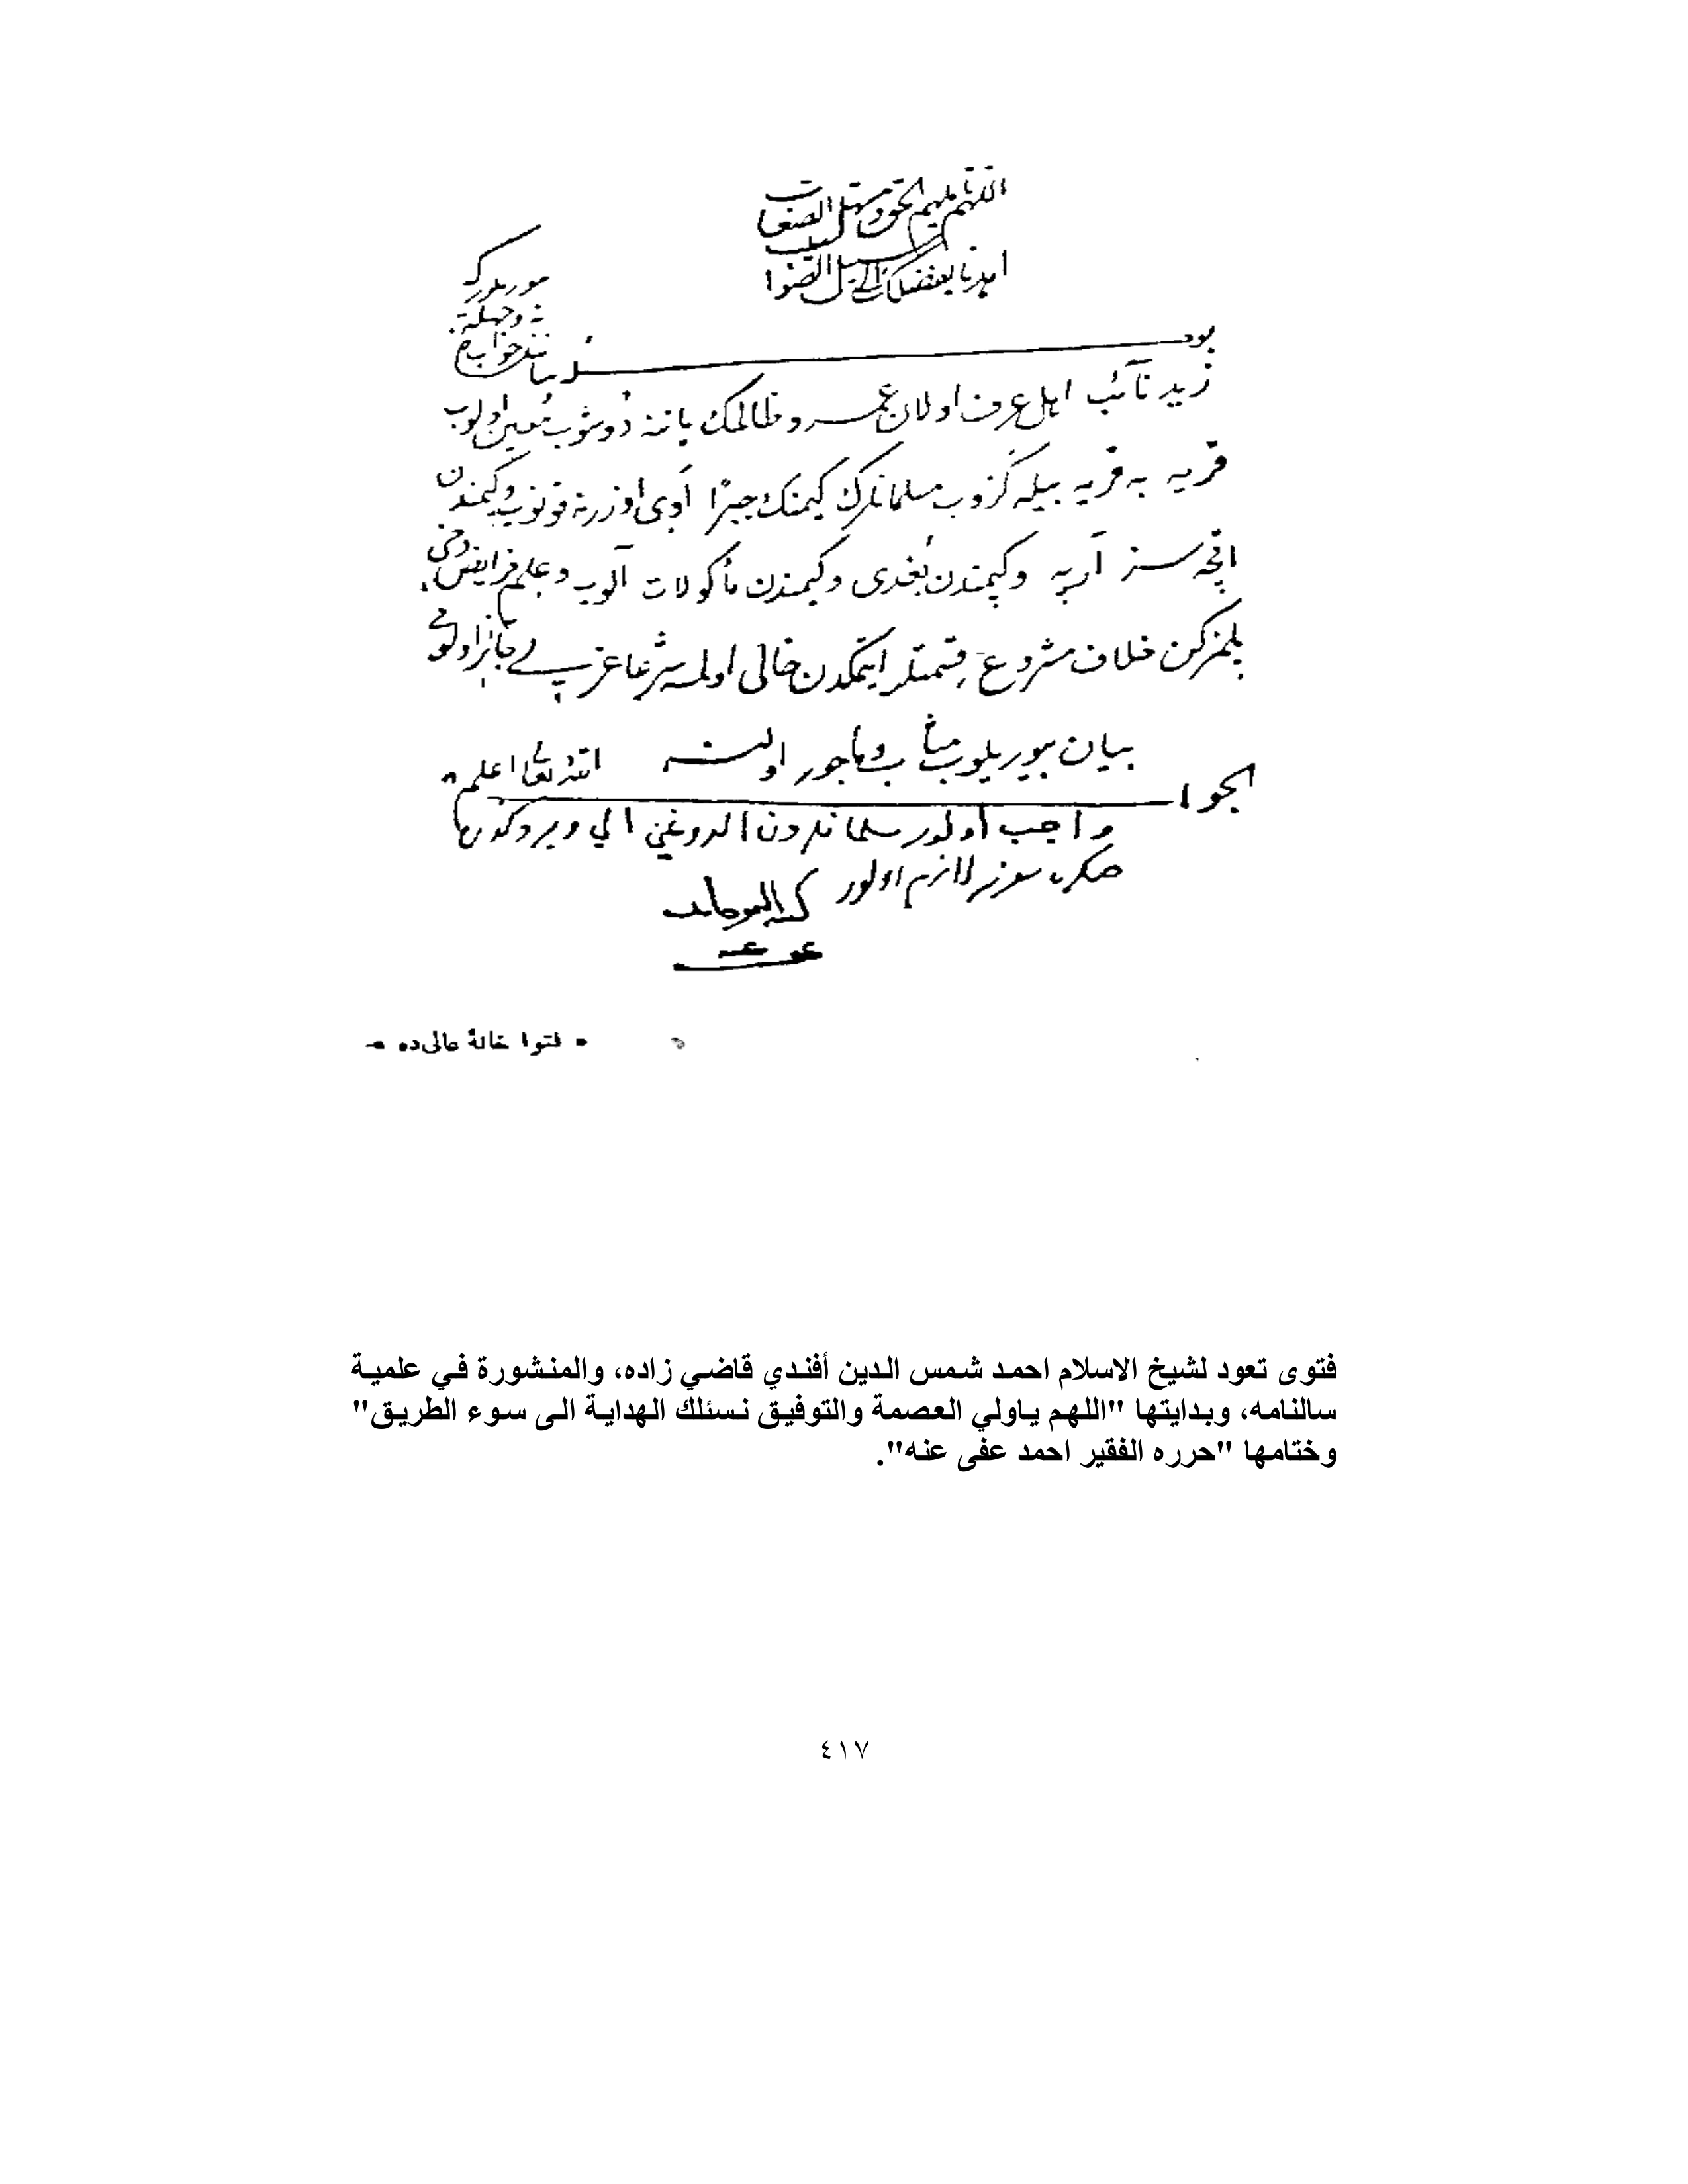 اللهم يا ملهم الحق ومسهل الصعاب
اهدنا بفضلك الى سبيل الصواب
زيد نائب اهل عرف اولان عمرو ظالمك ياننه دوشوب معين اولوب
قريه به قريه بيله كزوب مسلمانلرك كيمنك جبرًا اوى اوزرينه قونوب وكيمندن
اقچه سز آرپه وكيمندن بغدى وكيمندن مأكولات آلوب وعلم فرايض دخى
بلمزكن خلاف مشروع قسمتلر ايتمكدن خالى اولمسه شرعا عزلى جائز اولورمى
بيان بيوريلوب مثاب وماجور اولنه الله تعالى اعلم
الجواب
واجب اولور مسلمانلردن
لازم اولور
عفى عنه
فتوا خانهٔ عالى ده
فتوى تعود لشيخ الاسلام احمد شمس الدين أفندي قاضي زاده، والمنشورة في علمية
سالنامه، وبدايتها "اللهم ياولي العصمة والتوفيق نسئلك الهداية الى سوء الطريق"
وختامها "حرره الفقير احمد عفى عنه".
٤١٧